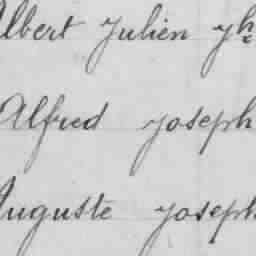 Albert Julien Jh
Alfred Joseph
Auguste Joseph